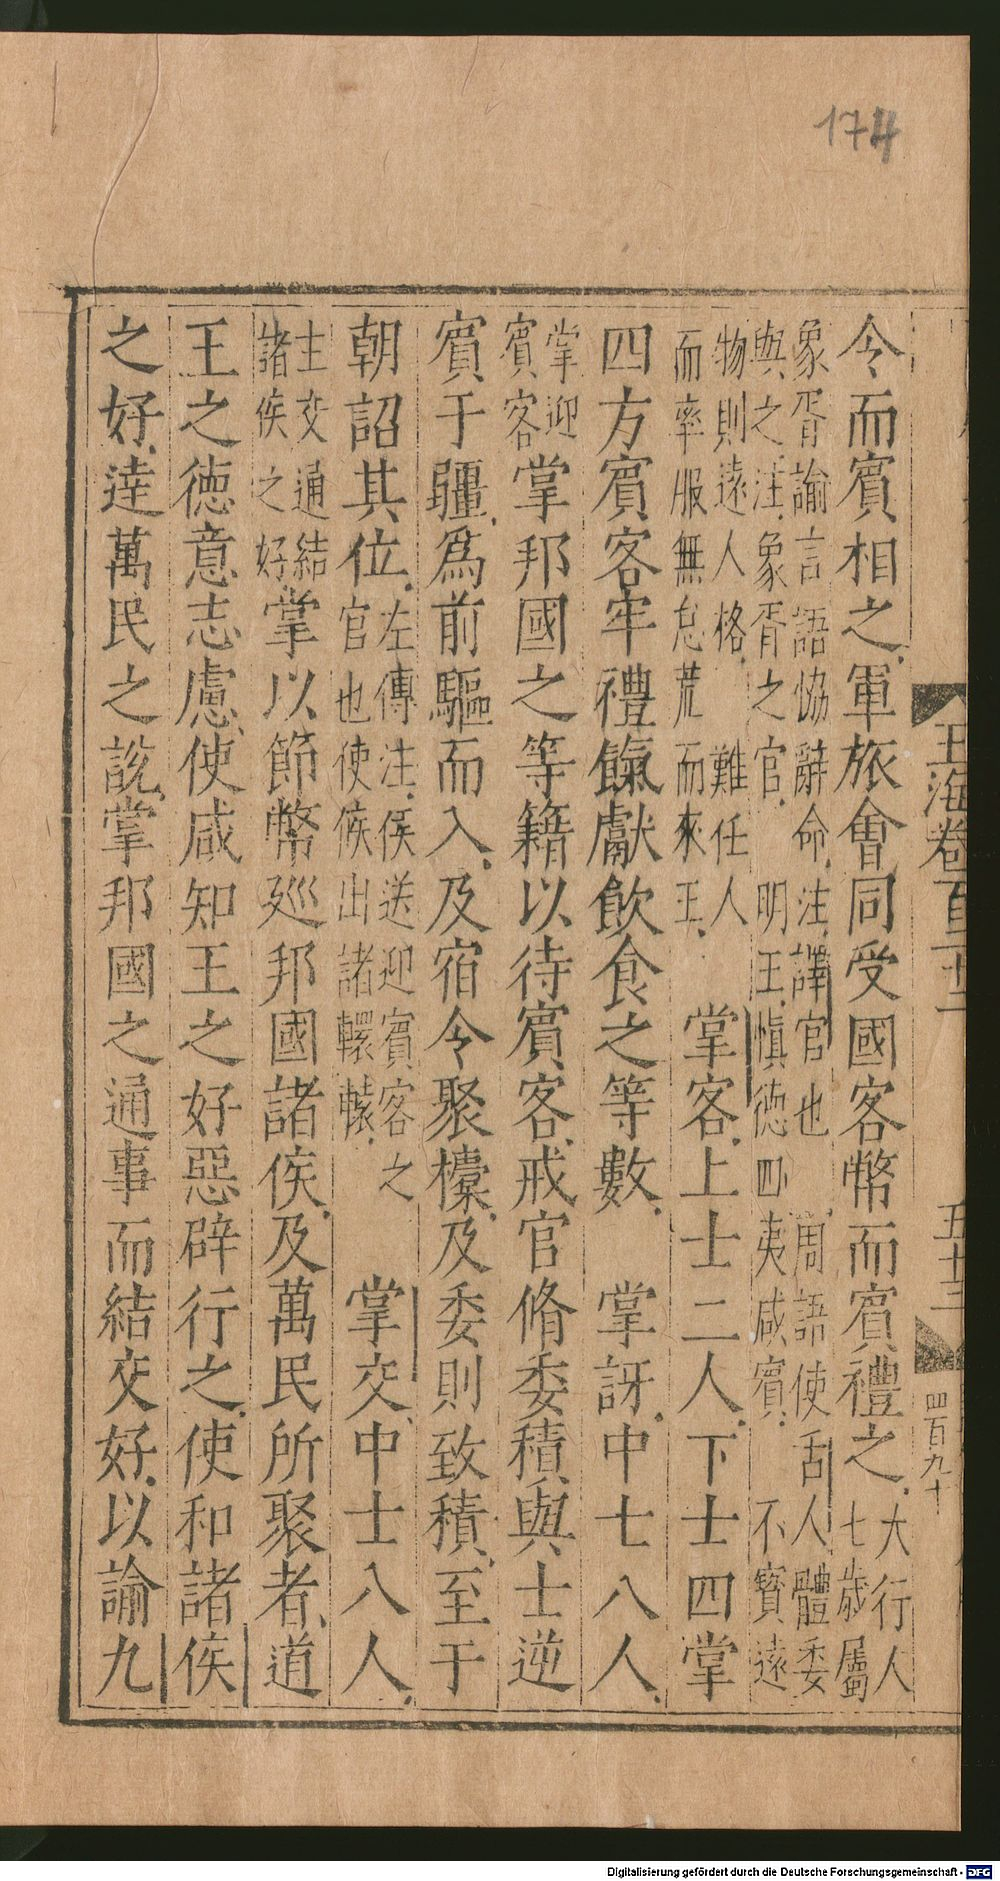 174
玉海卷百二十一
五十三
四百九十
令而賓相之軍旅會同受國客幣而賓禮之大行人七歲屬
象胥諭言語協辭命注譯官也 周語使舌人體委與之注象胥之官 明王慎德四夷咸賓不寳遠
物則遠人格 難任人而率服無怠荒而來王 掌客上士二人下士四掌
四方賓客牢禮餼獻飲食之等數 掌訝中七八人
掌迎賓客掌邦國之等籍以待賓客戒官脩委積與士逆
賓于疆爲前驅而入及宿令聚㯱及委則致積至于
朝詔其位左傳注候送迎賓客之官也使候出諸轘轅 掌交中士八人
主交通結諸侯之好掌以節幣廵邦國諸侯及萬民所聚者道
王之徳意志慮使咸知王之好惡辟行之使和諸侯
之好逹萬民之說掌邦國之通事而結交好以諭九
Digitalisierung gefördert durch die Deutsche Forschungsgemeinschaft - DFG